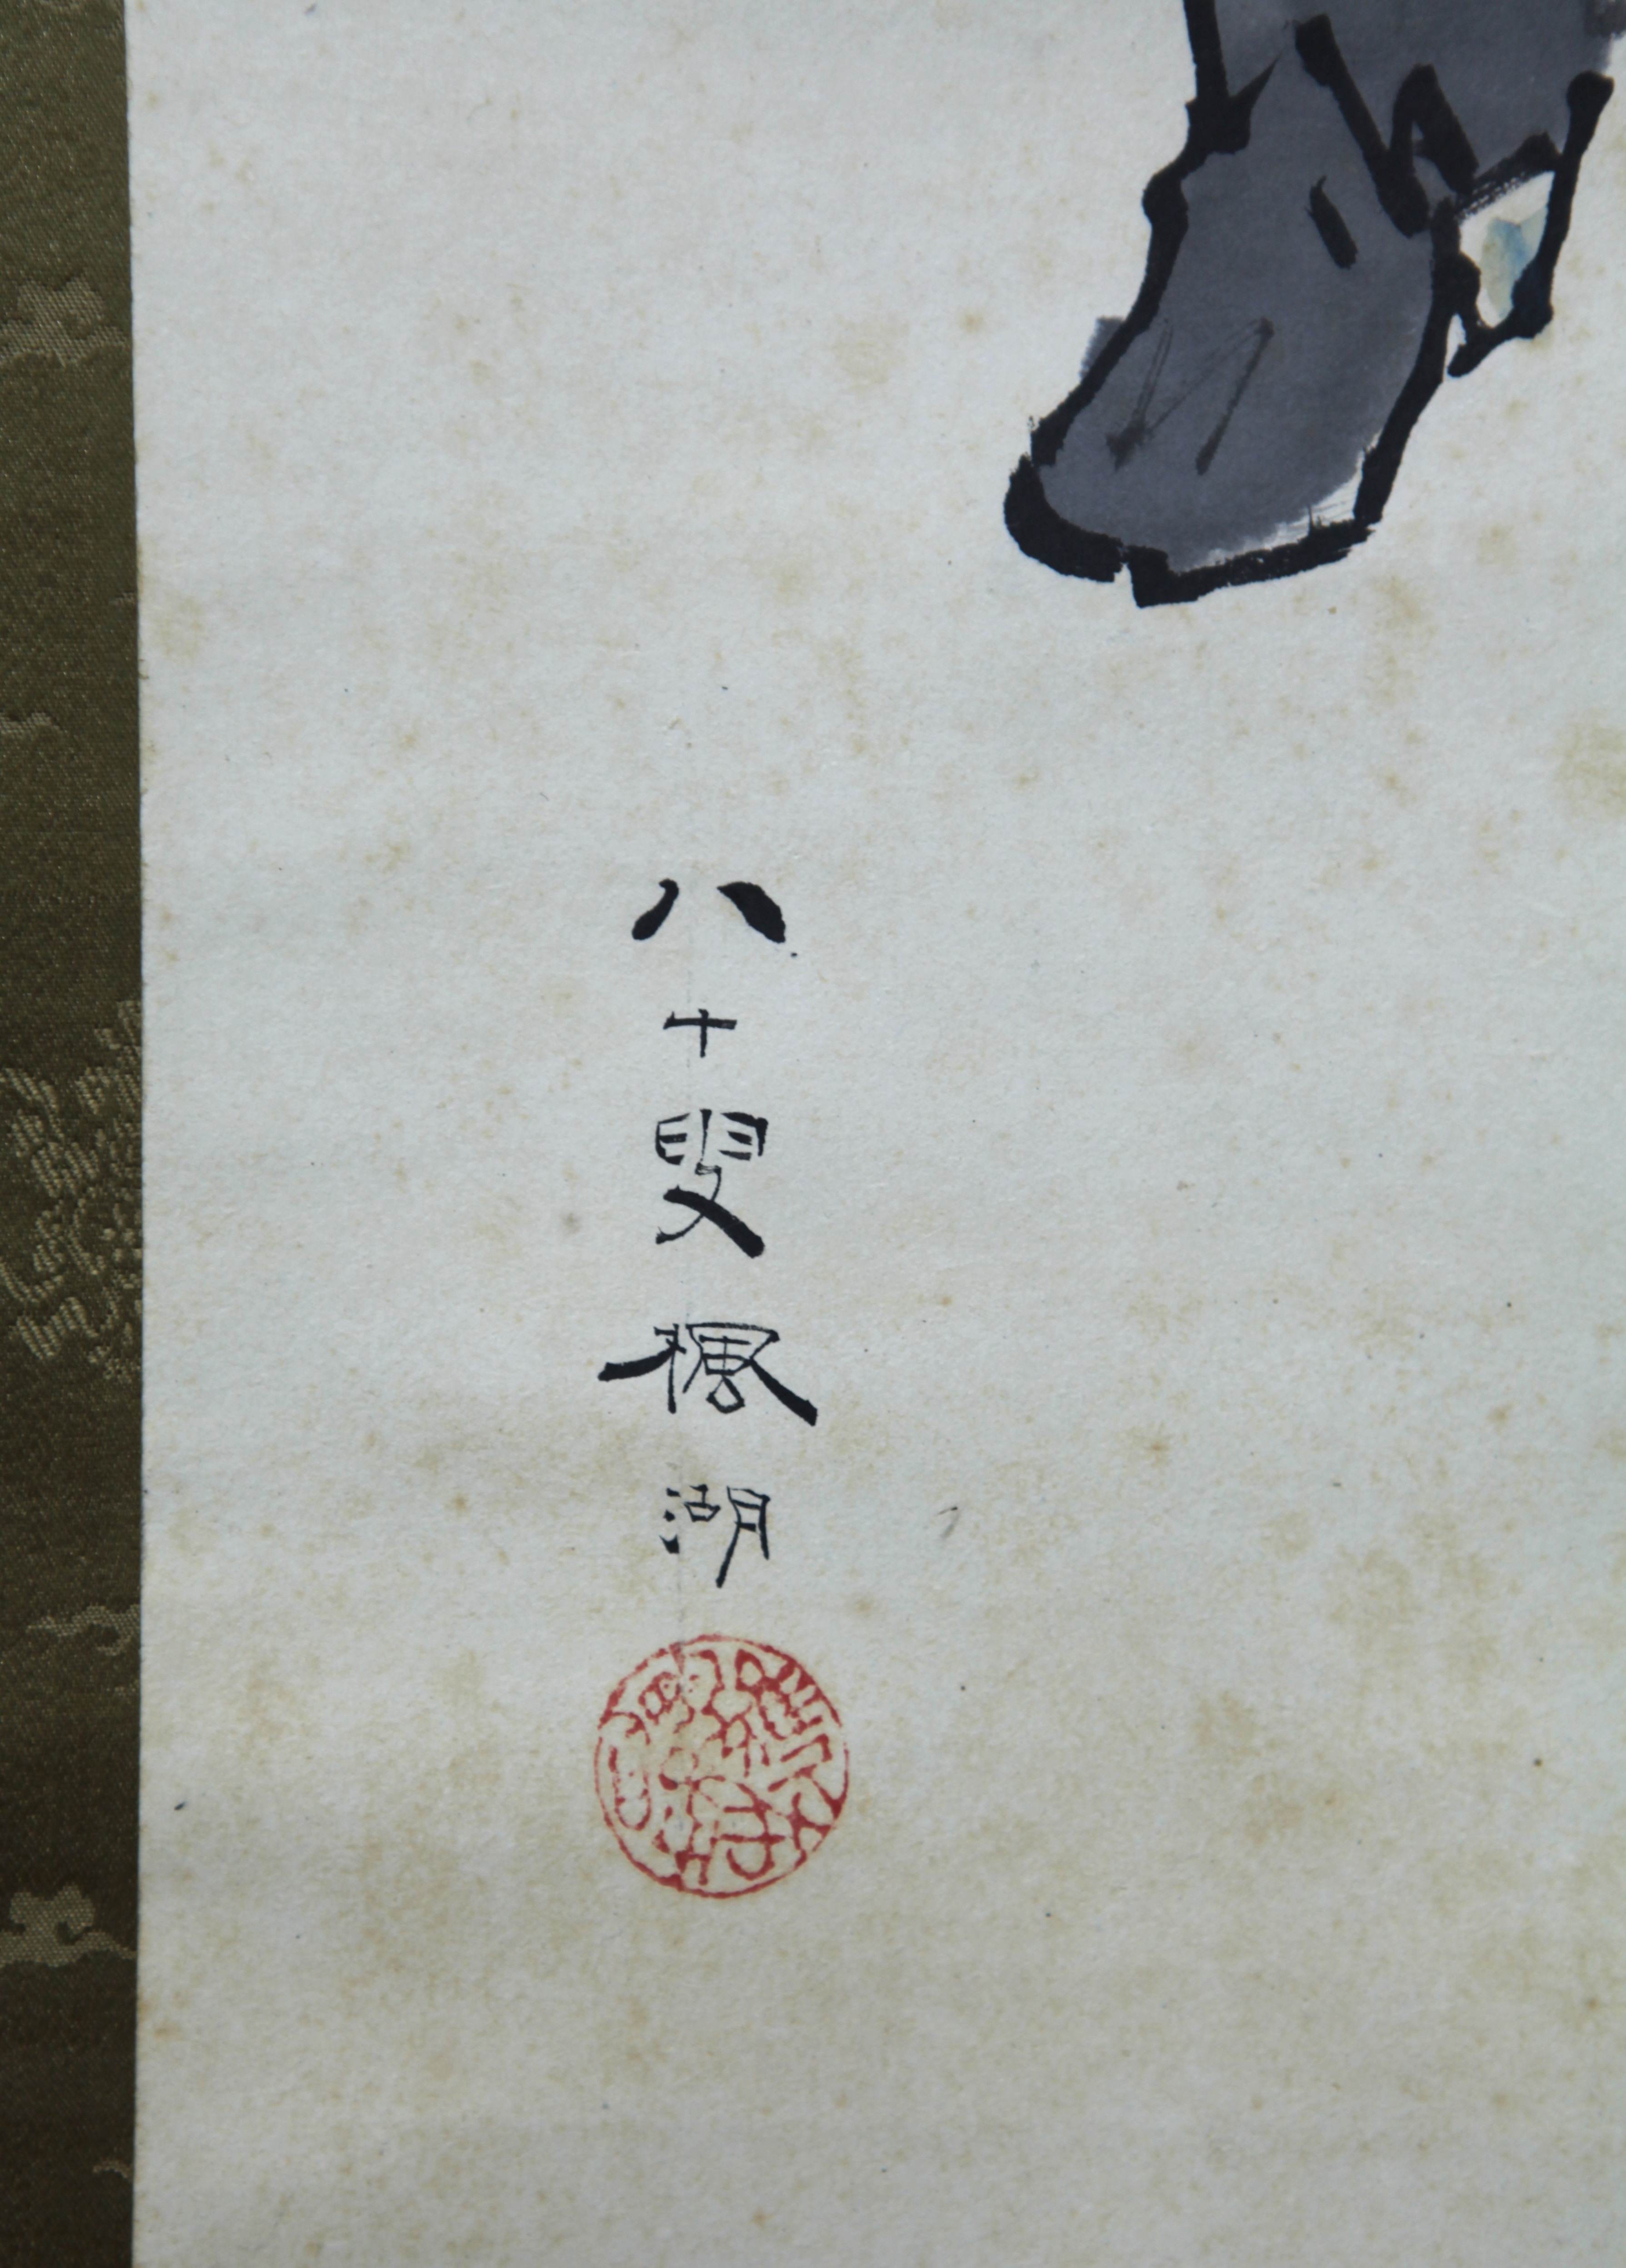 八十叟楓湖